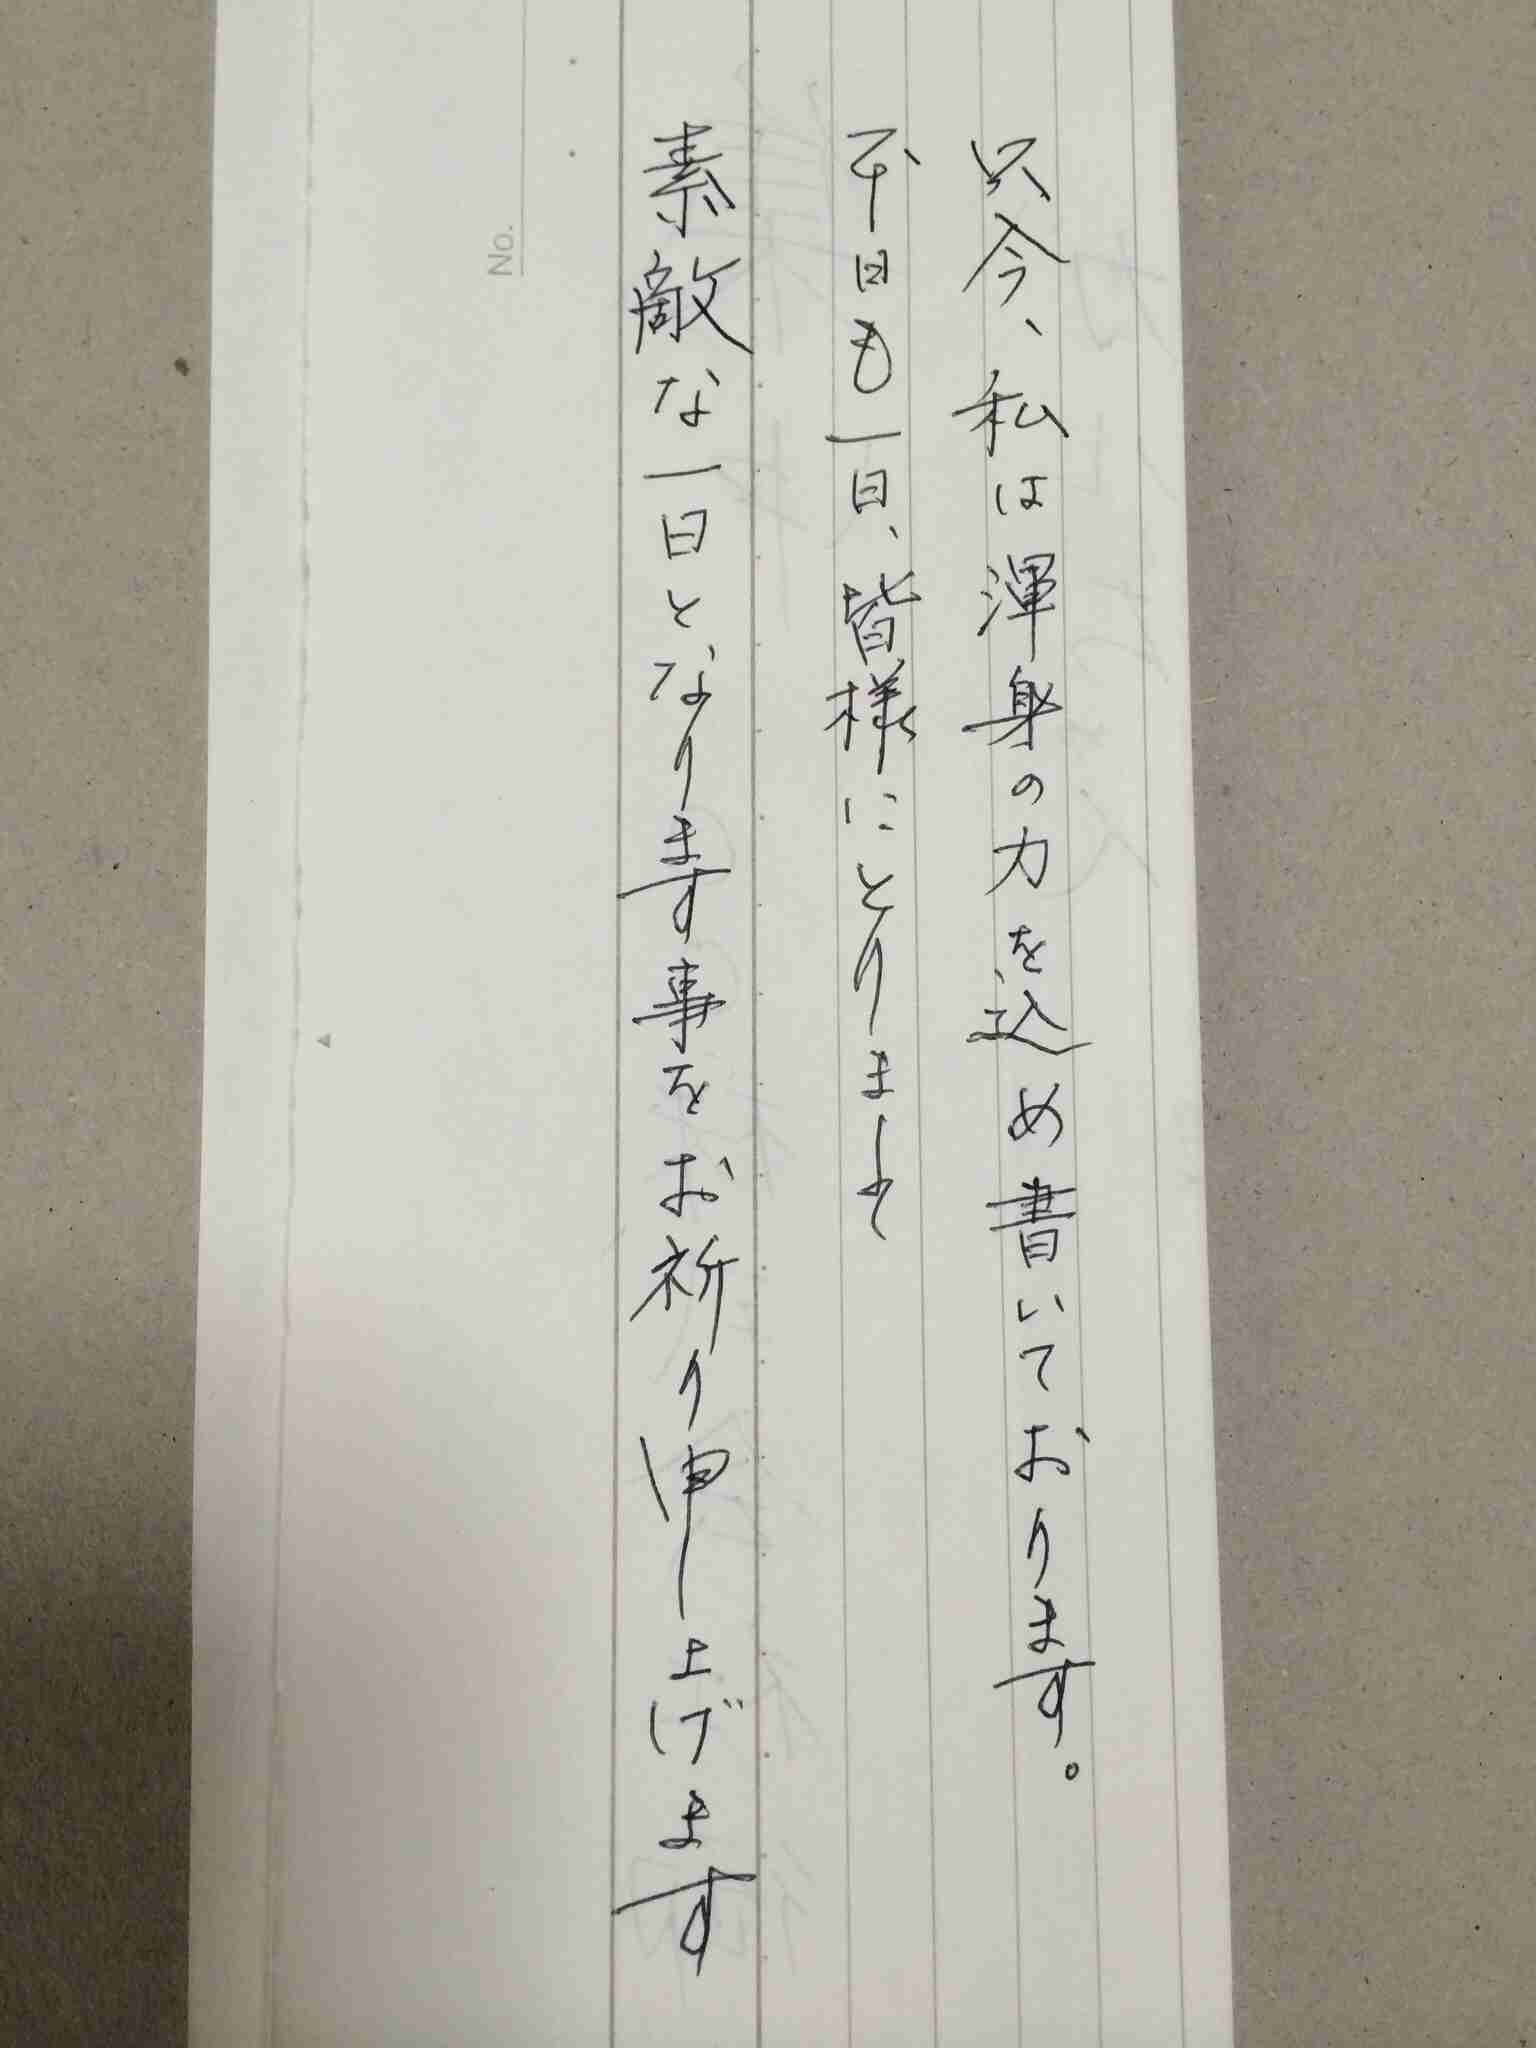 只今、私は渾身の力を込め書いております。
本日も一日、皆様にとりまして
素敵な一日となります事をお祈り申し上げます
No.